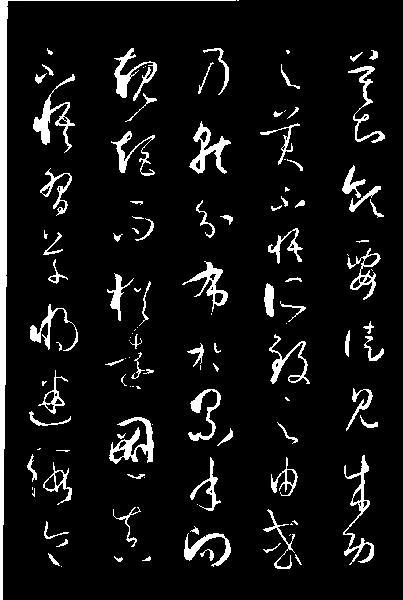 莫知領要徒見成功
之美不悟所致之由或
乃就分布於累年向
規矩而猶遠圖真
不悟習草將迷假令